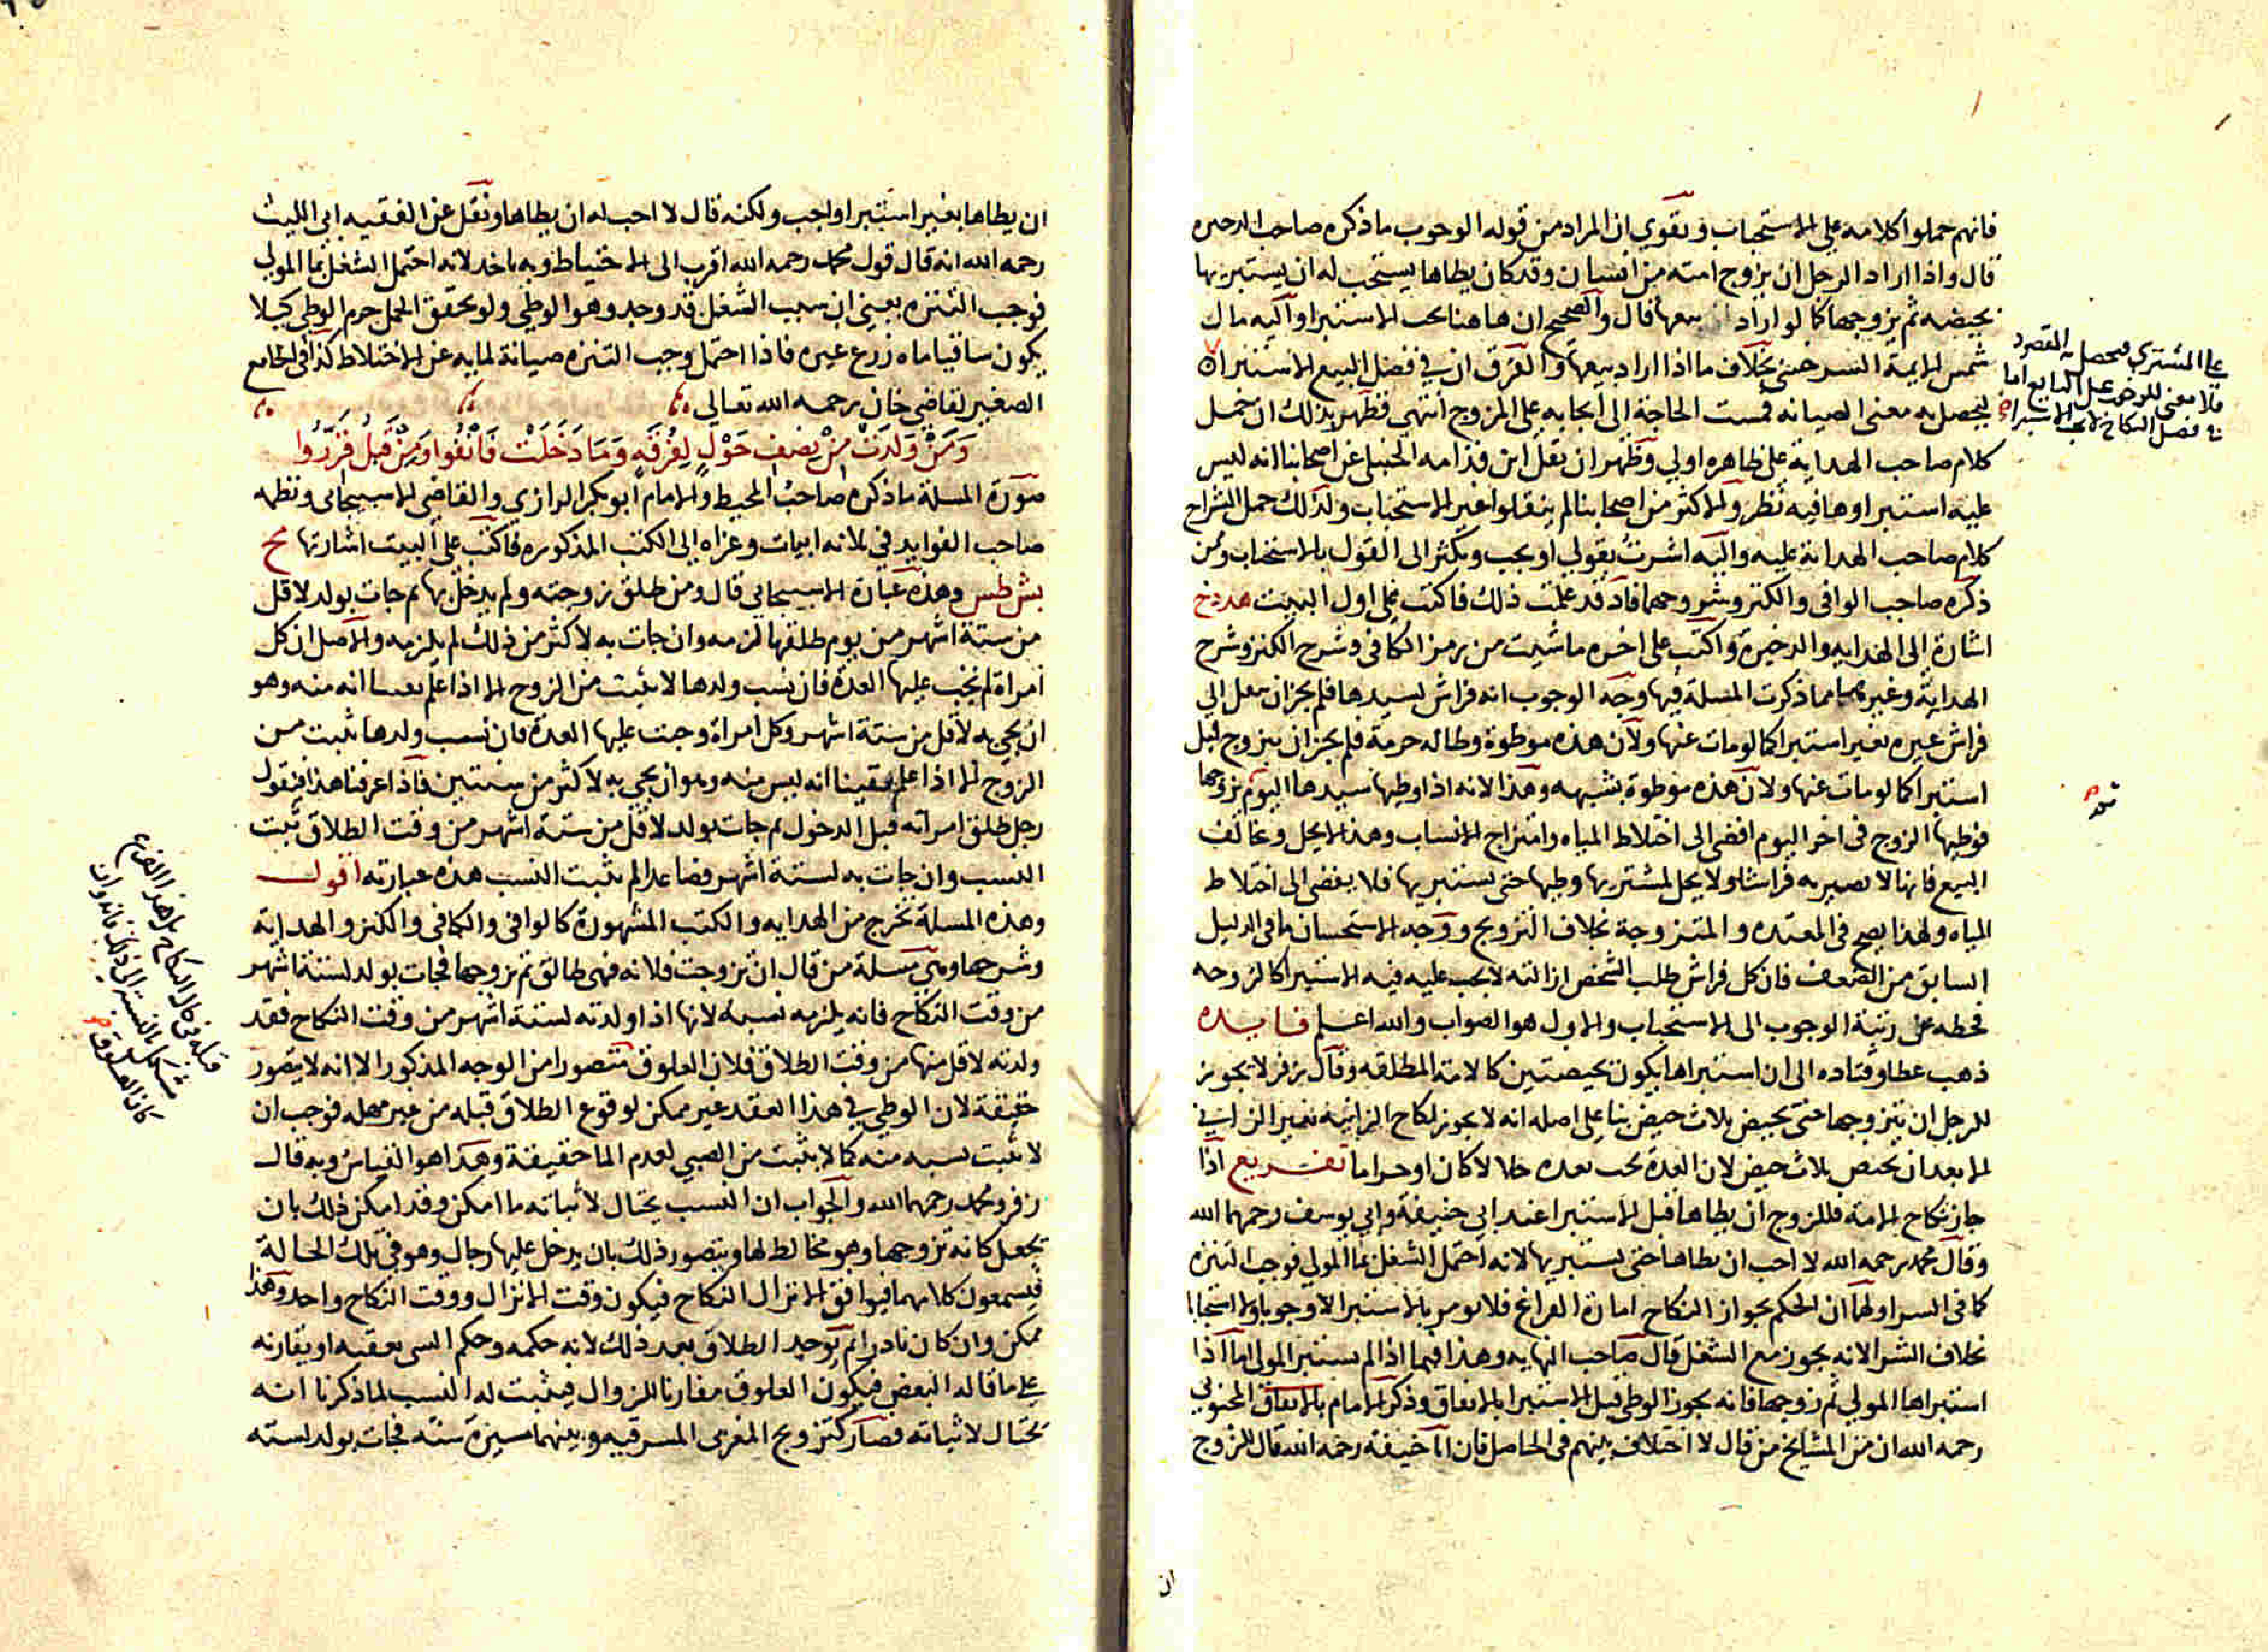 فانهم حملوا كلامه على الاستحباب ويقوي ان المراد من قوله الوجوب ما ذكره صاحب الدخيره
قال واذا اراد الرجل ان يزوج امته من انسان وقد كان يطاها يستحب له ان يستبريها
بحيضه ثم يزوجها كما لو اراد بيعها قال والصحيح ان هاهنا يجب الاستبرا واليه مال
شمس الايمة السرخسي بخلاف ما اذا اراد بيعها والفرق ان في فصل البيع الاستبراء
ليحصل به معنى الصيانه فمست الحاجة الى ايجابه على المزوج انتهى فظهر بذلك ان حمل
كلام صاحب الهداية على ظاهره اولي وظهر ان نقل ابن قدامه الحنبلي عن اصحابنا انه ليس
عليه استبراوها فيه نظر والاكثر من اصحابنا لم ينقلوا غير الاستحباب ولذلك حمل الشراح
كلام صاحب الهداية عليه واليه اشرت بقولي او يجب ويكثر الى القول بالاستحباب ومن
ذكره صاحب الوافى والكنز وشروحها فاذ قد علمت ذلك فاكتب على اول البيت هد دخ
اشارة الى الهدايه والدخيرة واكتب على اخره ماشيت من رمز الكافى وشرح الكنز وشرح
الهداية وغيرهما مما ذكرت المسلة فيها وجه الوجوب انه فراش لسيدها فلم يجز ان ينقل الى
فراش غيره بغير استبرا كما لو مات عنها ولان هذه موطوة وطا له حرمة فلم يجز ان يتزوج قبل
استبرا كما لو مات عنها ولان هذه موطوة بشبهه وهذا لانه اذا وطيها سيدها اليوم يزوجها
فوطيها الزوج فى اخر اليوم افضى الى اختلاط المياه وامتزاج الانساب وهذا لا يحل ويخالف
البيع فانها لا تصير به فراشا ولا يحل لمشتريها وطيها حتى يستبريها فلا يفضى الى اختلاط
المياه ولهذا يصح فى المعتده والمتزوجة بخلاف التزويج ووجه الاستحسان ما فى الدليل
السابق من الضعف فان كل فراش طلب الشخص ازالته لا يجب عليه فيه الاستبرا كالزوجه
فحطه عن رتبة الوجوب الى الاستحباب والاول هو الصواب والله اعلم فايده
ذهب عطا وقتاده الى ان استبراها يكون بحيضتين كالامة المطلقه وقال زفر لا يجوز
للرجل ان يتزوجها حتى تحيض ثلاث حيض بنا على اصله انه لا يجوز نكاح الزانيه لغير الزاني
الا بعد ان تحيض ثلاث حيض لان العدة تجب بعده حلالا كان او حراما تفريع اذا
جاز نكاح الامة فللزوج ان يطاها قبل الاستبرا عند ابي حنيفة وابي يوسف رحمهما الله
وقال محمد رحمه الله لا احب ان يطاها حتى يستبريها لانه احتمل الشغل بما المولى فوجب التنزه
كما فى الشرا ولهما ان الحكم بجواز النكاح امارة الفراغ فلا يومر بالاستبرا لا وجوبا ولا استحبابا
بخلاف الشرا لانه يجوز مع الشغل قال صاحب النهايه وهذا فيما اذا لم يستبر المولى اما اذا
استبراها المولى ثم زوجها فانه يجوز الوطى قبل الاستبرا بالاتفاق وذكر الامام بالاتفاق المحبوبي
رحمه الله ان من المشايخ من قال لا اختلاف بينهم فى الحاصل فان ابا حنيفة رحمه الله قال للزوج
على المشتري فيحصل المقصود
فلا معنى للوجوب على البايع اما
فى فصل النكاح لا يجب الاستبراء
ان
ان يطاها بغير استبرا واجب ولكنه قال لا احب له ان يطاها ونقل عن الفقيه ابى الليث
رحمه الله انه قال قول محمد رحمه الله اقرب الى الاحتياط وبه ناخد لانه احتمل الشغل بما المولى
فوجب التنزه يعني ان سبب الشغل قد وجد وهو الوطي ولو تحقق الحمل حرم الوطي كيلا
يكون ساقيا ماه زرع غيره فاذا احتمل وجب التنزه صيانة لمايه عن الاختلاط كذا فى الجامع
الصغير لقاضى خان رحمه الله تعالى
وَمَنْ وَلَدَتْ مِنْ نِصْفِ حَوْلٍ لِفُرْقَةٍ وَمَا دَخَلَتْ فَانْفُوا وَمِنْ قَبْلُ قَرَّرُوا
صورة المسلة ما ذكره صاحب المحيط والامام ابو بكر الرازي والقاضى الاسبيجابى ونظمه
صاحب الفوايد في ثلاثه ابيات وعزاه إلى الكتب المذكوره فاكتب على البيت اشارتها مح
بش طس وهذه عبارة الاسبيجابى قال ومن طلق زوجته ولم يدخل بها ثم جات بولد لاقل
من ستة اشهر من يوم طلقها لزمه وان جات به لاكثر من ذلك لم يلزمه والاصل ان كل
امراة لم تجب عليها العدة فان نسب ولدها لا يثبت من الزوج الا اذا علم يقينا انه منه وهو
ان يجي به لاقل من ستة اشهر وكل امراة وجبت عليها العدة فان نسب ولدها يثبت من
الزوج الا اذا علم يقينا انه ليس منه وهو ان يجي به لاكثر من سنتين فاذا عرفنا هذا فنقول
رجل طلق امراته قبل الدخول ثم جات بولد لاقل من ستة اشهر من وقت الطلاق ثبت
النسب وان جات به لستة اشهر فصاعدا لم يثبت النسب هذه عبارته اقول
وهذه المسلة تخرج من الهدايه والكتب المشهورة كالوافى والكافى والكنز والهداية
وشرحها وهي مسلة من قال ان تزوجت فلانه فهى طالق ثم تزوجها فجات بولد لستة اشهر
من وقت النكاح فانه يلزمه نسبه لانها اذا ولدته لستة اشهر من وقت النكاح فقد
ولدته لاقل منها من وقت الطلاق فلان العلوق متصورا من الوجه المذكور الا انه لا يتصور
حقيقة لان الوطي في هذا العقد غير ممكن لوقوع الطلاق قبله من غير مهله فوجب ان
لا يثبت نسبه منه كما لا يثبت من الصبى لعدم الما حقيقة وهذا هو القياس وبه قال
زفر ومحمد رحمهما الله والجواب ان النسب يحتال لاثباته ما امكن وقد امكن ذلك بان
يجعل كانه تزوجها وهو مخالط لها ويتصور ذلك بان يدخل عليها رجال وهو فى تلك الحالة
فيسمعون كلامهما فيوافق الانزال النكاح فيكون وقت الانزال ووقت النكاح واحد وهذا
ممكن وان كان نادرا ثم يوجد الطلاق بعد ذلك لانه حكمه وحكم الشى يعقبه او يقارنه
على ما قاله البعض فيكون العلوق مقارنا للزوال فيثبت له النسب لما ذكرنا انه
يحتال لاثباته فصار كتزويج المغربى المشرقيه وبينهما مسيرة سنة فجات بولد لستة